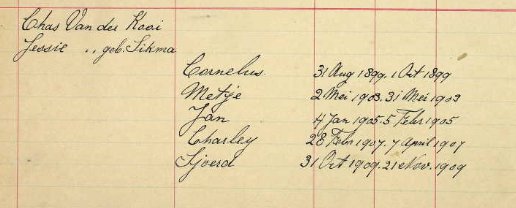 Chas Van der Kooi
Jessie ,, geb. Sikma
Cornelus 31 Aug 1899. 1 Oct 1899
Metje 2 Mei 1903. 31 Mei 1903
Jan 4 Jan 1905. 5 Febr 1905
Charley 28 Febr 1907. 7 April 1907
Sjoerd 31 Oct 1909. 21 Nov. 1909